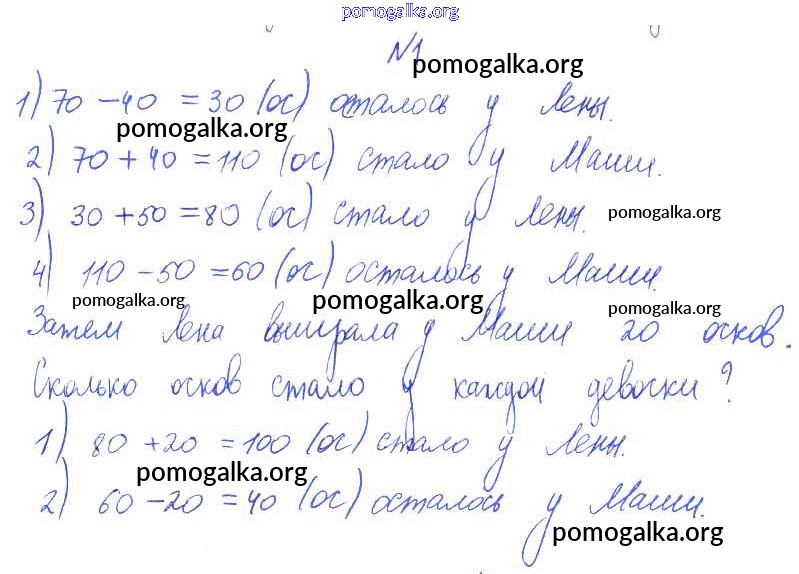 pomogalka.org
№1
pomogalka.org
1) 70 - 40 = 30 (ос) осталось у Лены.
pomogalka.org
2) 70 + 40 = 110 (ос) стало у Маши.
3) 30 + 50 = 80 (ос) стало у Лены.
pomogalka.org
4) 110 - 50 = 60 (ос) осталось у Маши.
pomogalka.org pomogalka.org pomogalka.org
Затем Лена выиграла у Маши 20 осков.
Сколько осков стало у каждой девоски?
1) 80 + 20 = 100 (ос) стало у Лены.
pomogalka.org
2) 60 - 20 = 40 (ос) осталось у Маши.
pomogalka.org